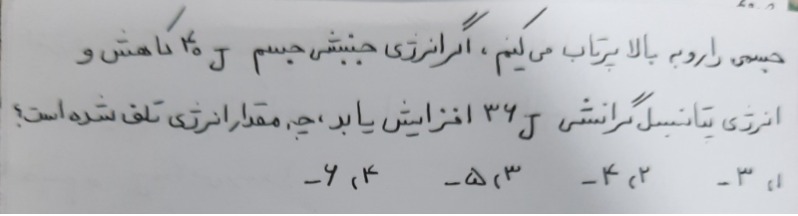 جسمی را رو به بالا پرتاب می‌کنیم، اگر انرژی جنبشی جسم ۴۰ J کاهش و
انرژی پتانسیل گرانشی ۳۶ J افزایش یابد، چه مقدار انرژی تلف شده است؟
۱) ۳- ۲) ۴- ۳) ۵- ۴) ۶-